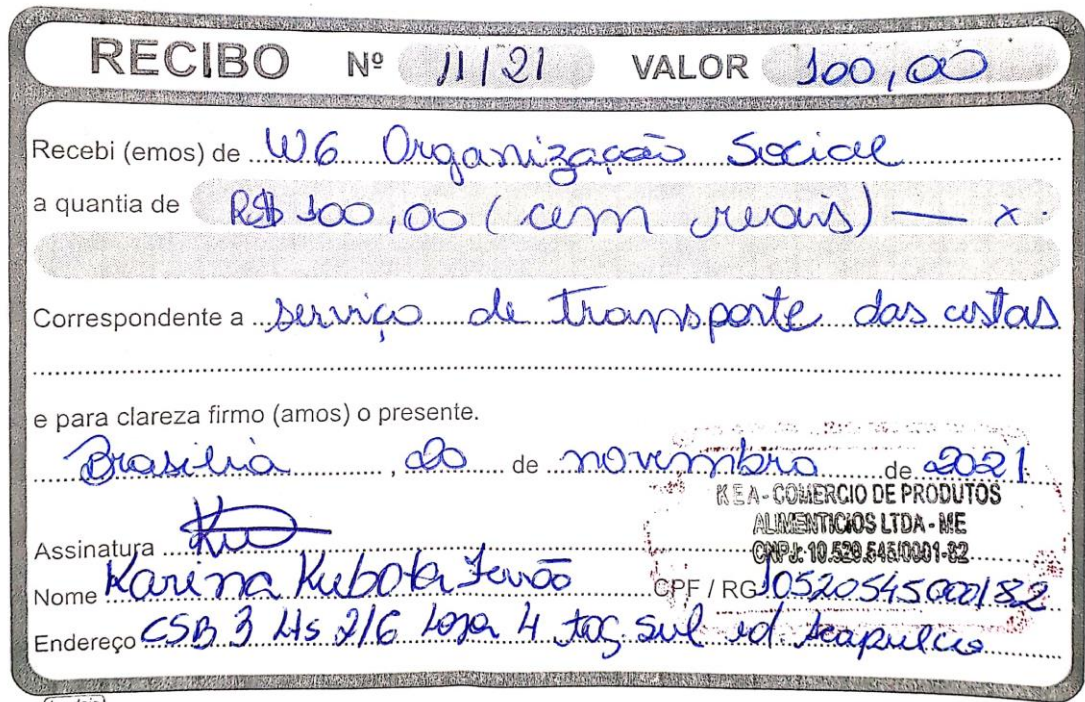 RECIBO Nº 11/21 VALOR 100,00
Recebi (emos) de W6 Organização Social
a quantia de R$ 100,00 (cem reais) — x.
Correspondente a serviço de transporte das cestas
e para clareza firmo (amos) o presente.
Brasilia, 20 de novembro de 2021
K E A - COMERCIO DE PRODUTOS
ALIMENTICIOS LTDA - ME
CNPJ: 10.520.545/0001-82
Assinatura
Nome Karina Kubota CPF / RG 10520545000182
Endereço CSB 3 Lts 2/6 Loja 4 tag sul ed Acapulco